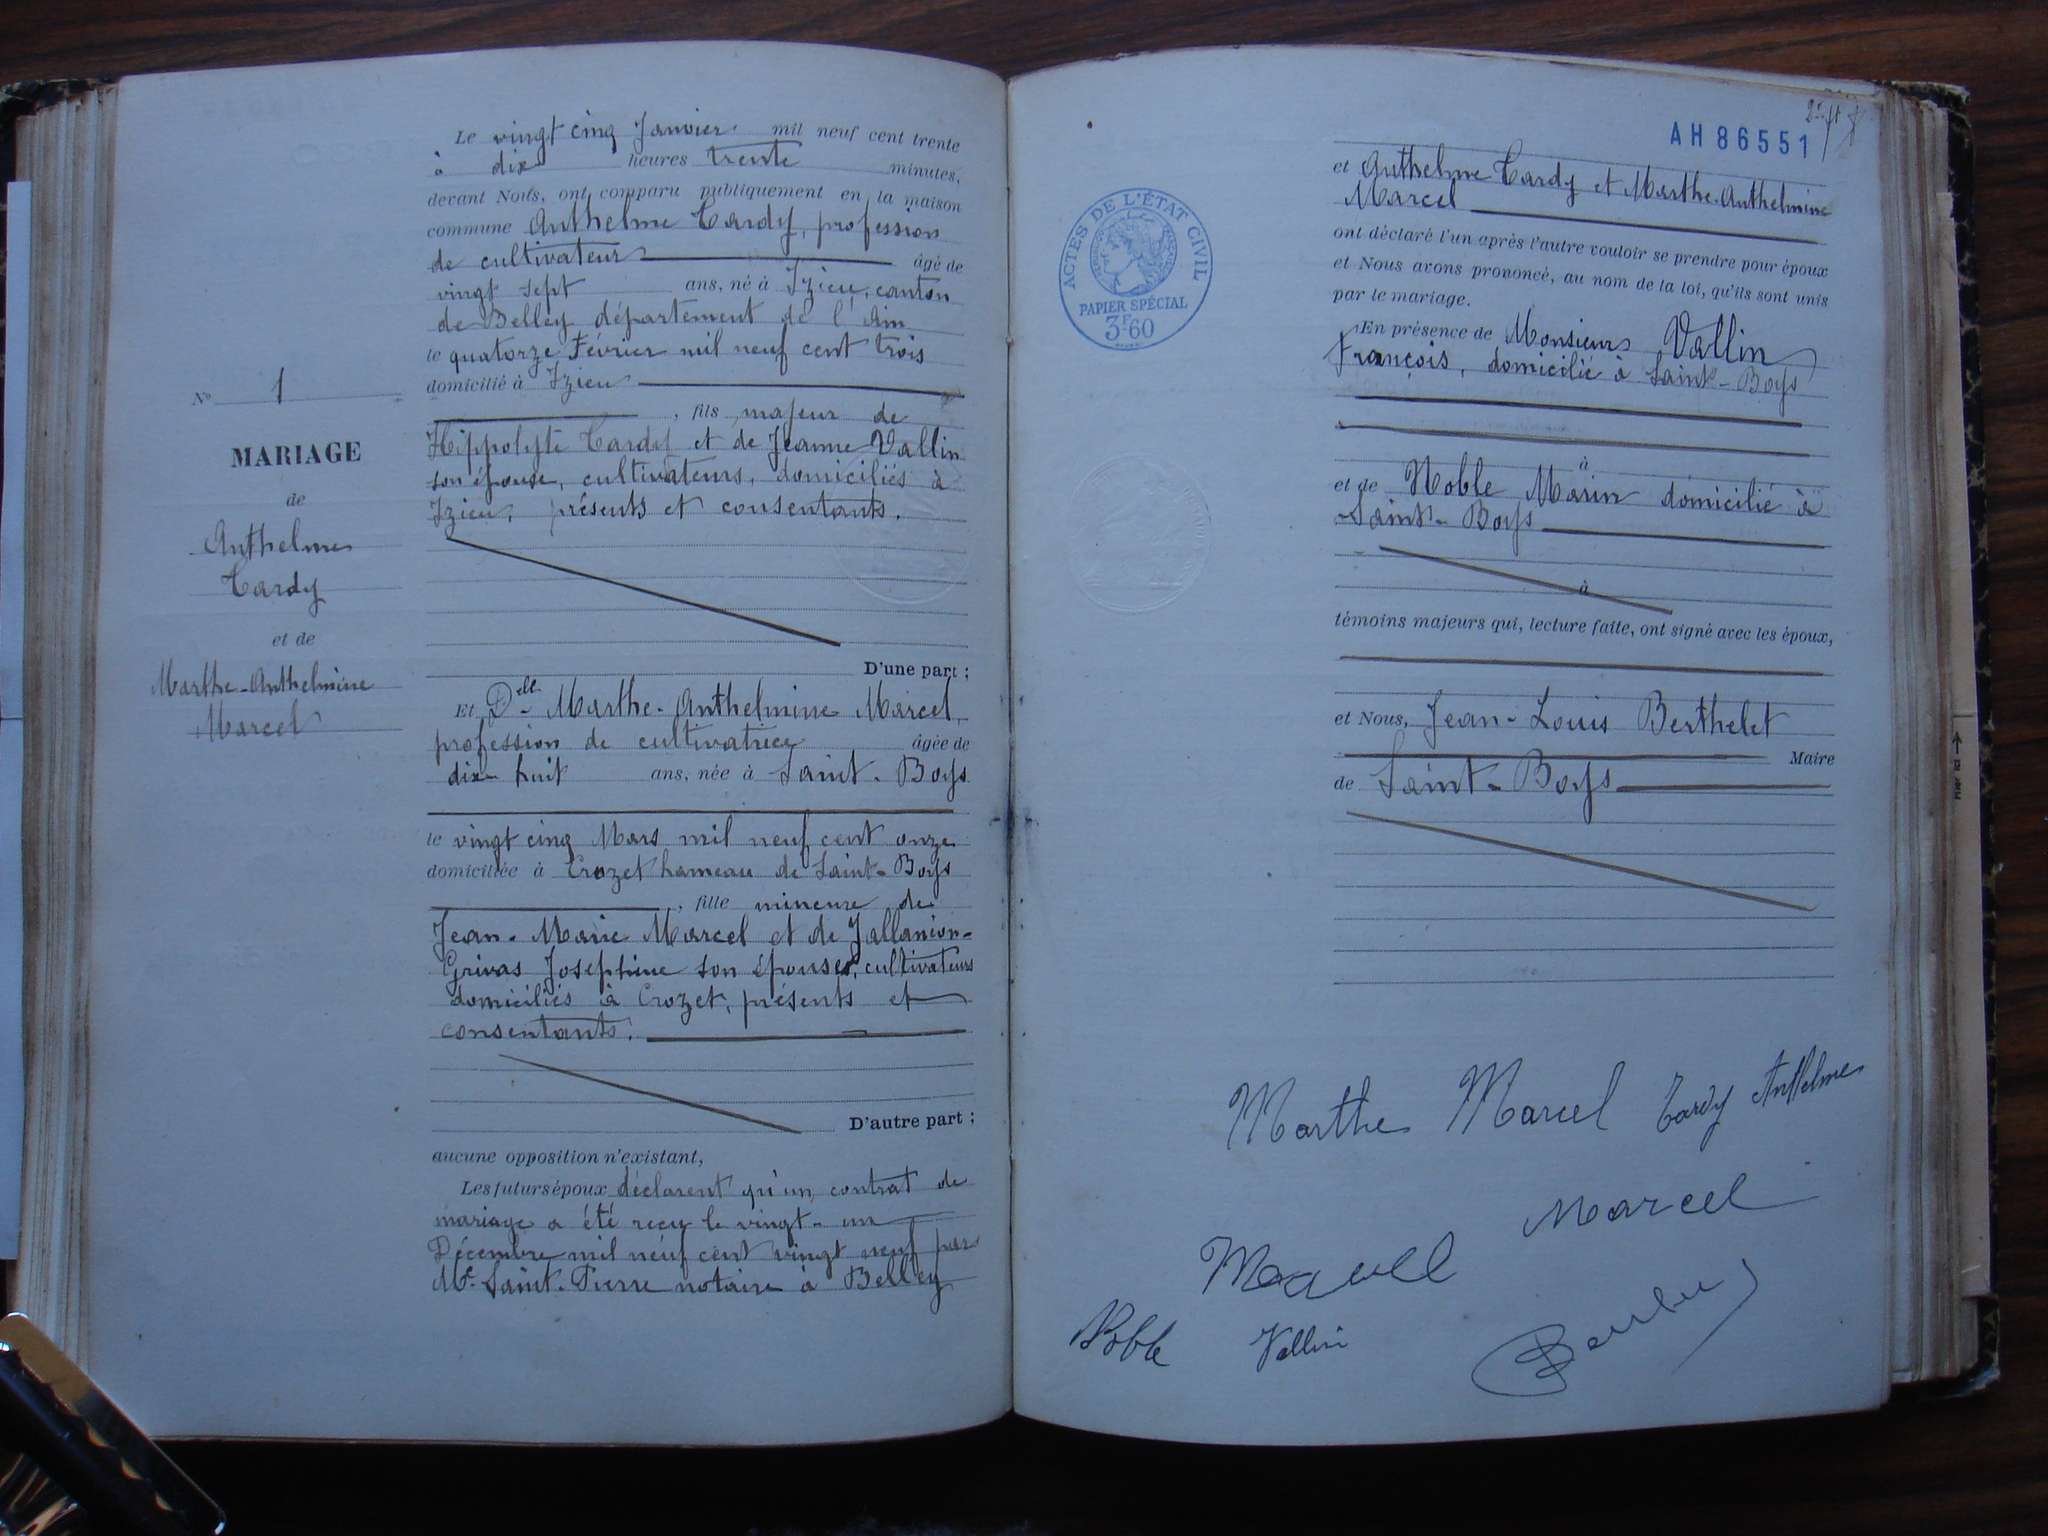 Le vingt cinq Janvier mil neuf cent trente
à dix heures trente minutes,
devant Nous, ont comparu publiquement en la maison
commune Anthelme Tardy, profession
de cultivateur âgé de
vingt sept ans, né à Izieu, canton
de Belley département de l'Ain
le quatorze Février mil neuf cent trois
domicilié à Izieu
, fils majeur de
Hippolyte Tardy et de Jeanne Vallin
son épouse, cultivateurs, domiciliés à
Izieu, présents et consentants.
D'une part ;
N° 1
MARIAGE
de
Anthelme
Tardy
et de
Marthe-Anthelmine
Marcel
Et Delle Marthe-Anthelmine Marcel,
profession de cultivatrice âgée de
dix-huit ans, née à Saint-Boys
le vingt cinq Mars mil neuf cent onze
domiciliée à Crozet hameau de Saint-Boys
, fille mineure de
Jean-Marie Marcel et de Jallanion-
Grivas Joséphine son épouse, cultivateurs
domiciliés à Crozet, présents et
consentants.
D'autre part ;
aucune opposition n'existant,
Les futurs époux déclarent qu'un contrat de
mariage a été reçu le vingt-un
Décembre mil neuf cent vingt neuf par
Me Saint-Pierre notaire à Belley
AH 86551
ACTES DE L'ÉTAT CIVIL
PAPIER SPÉCIAL
3F60
et Anthelme Tardy et Marthe-Anthelmine
Marcel
ont déclaré l'un après l'autre vouloir se prendre pour époux
et Nous avons prononcé, au nom de la loi, qu'ils sont unis
par le mariage.
En présence de Monsieur Vallin
François, domicilié à Saint-Boys
à
et de Noble Marin domicilié à
Saint-Boys
à
témoins majeurs qui, lecture faite, ont signé avec les époux,
et Nous, Jean-Louis Berthelet
Maire
de Saint-Boys
Marthe Marcel Tardy Anthelme
Marcel
Marcel
Noble Vallin